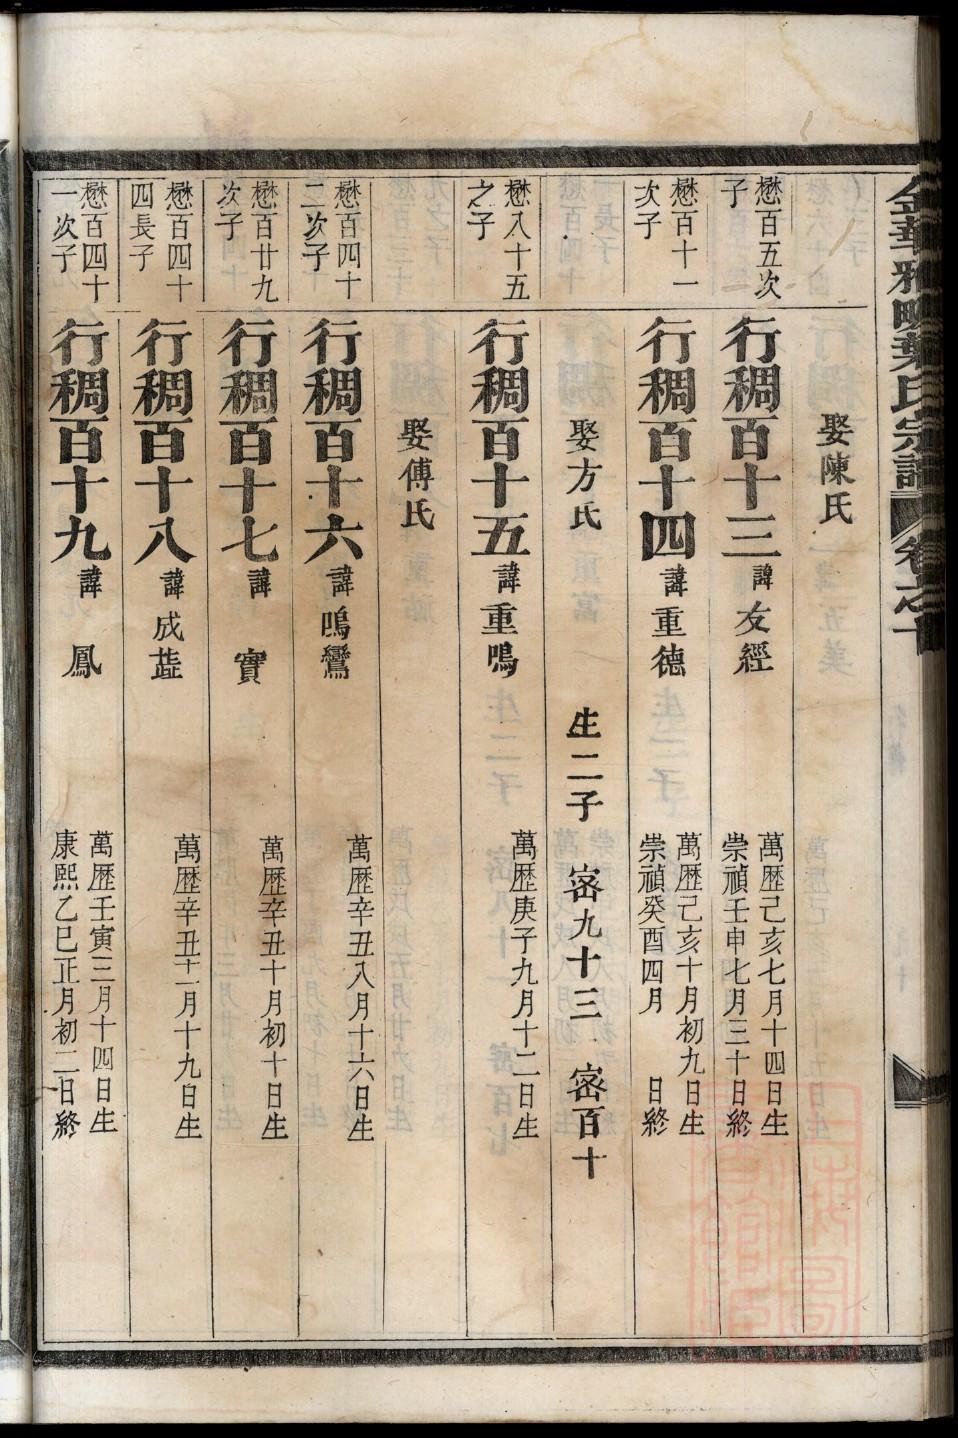 金華雅畈葉氏宗譜 卷之十
娶陳氏
懋百五次子
行稠百十三 諱友經 萬歷己亥七月十四日生 崇禎壬申七月三十日終
懋百十一次子
行稠百十四 諱重德 萬歷己亥十月初九日生 崇禎癸酉四月 日終
娶方氏 生二子 密九十三 密百十
懋八十五之子
行稠百十五 諱重鳴 萬歷庚子九月十二日生
娶傅氏
懋百四十二次子
行稠百十六 諱鳴鸞 萬歷辛丑八月十六日生
懋百廿九次子
行稠百十七 諱 實 萬歷辛丑十月初十日生
懋百四十四長子
行稠百十八 諱成 萬歷辛丑十一月十九日生
懋百四十一次子
行稠百十九 諱 鳳 萬歷壬寅三月十四日生 康熙乙巳正月初二日終